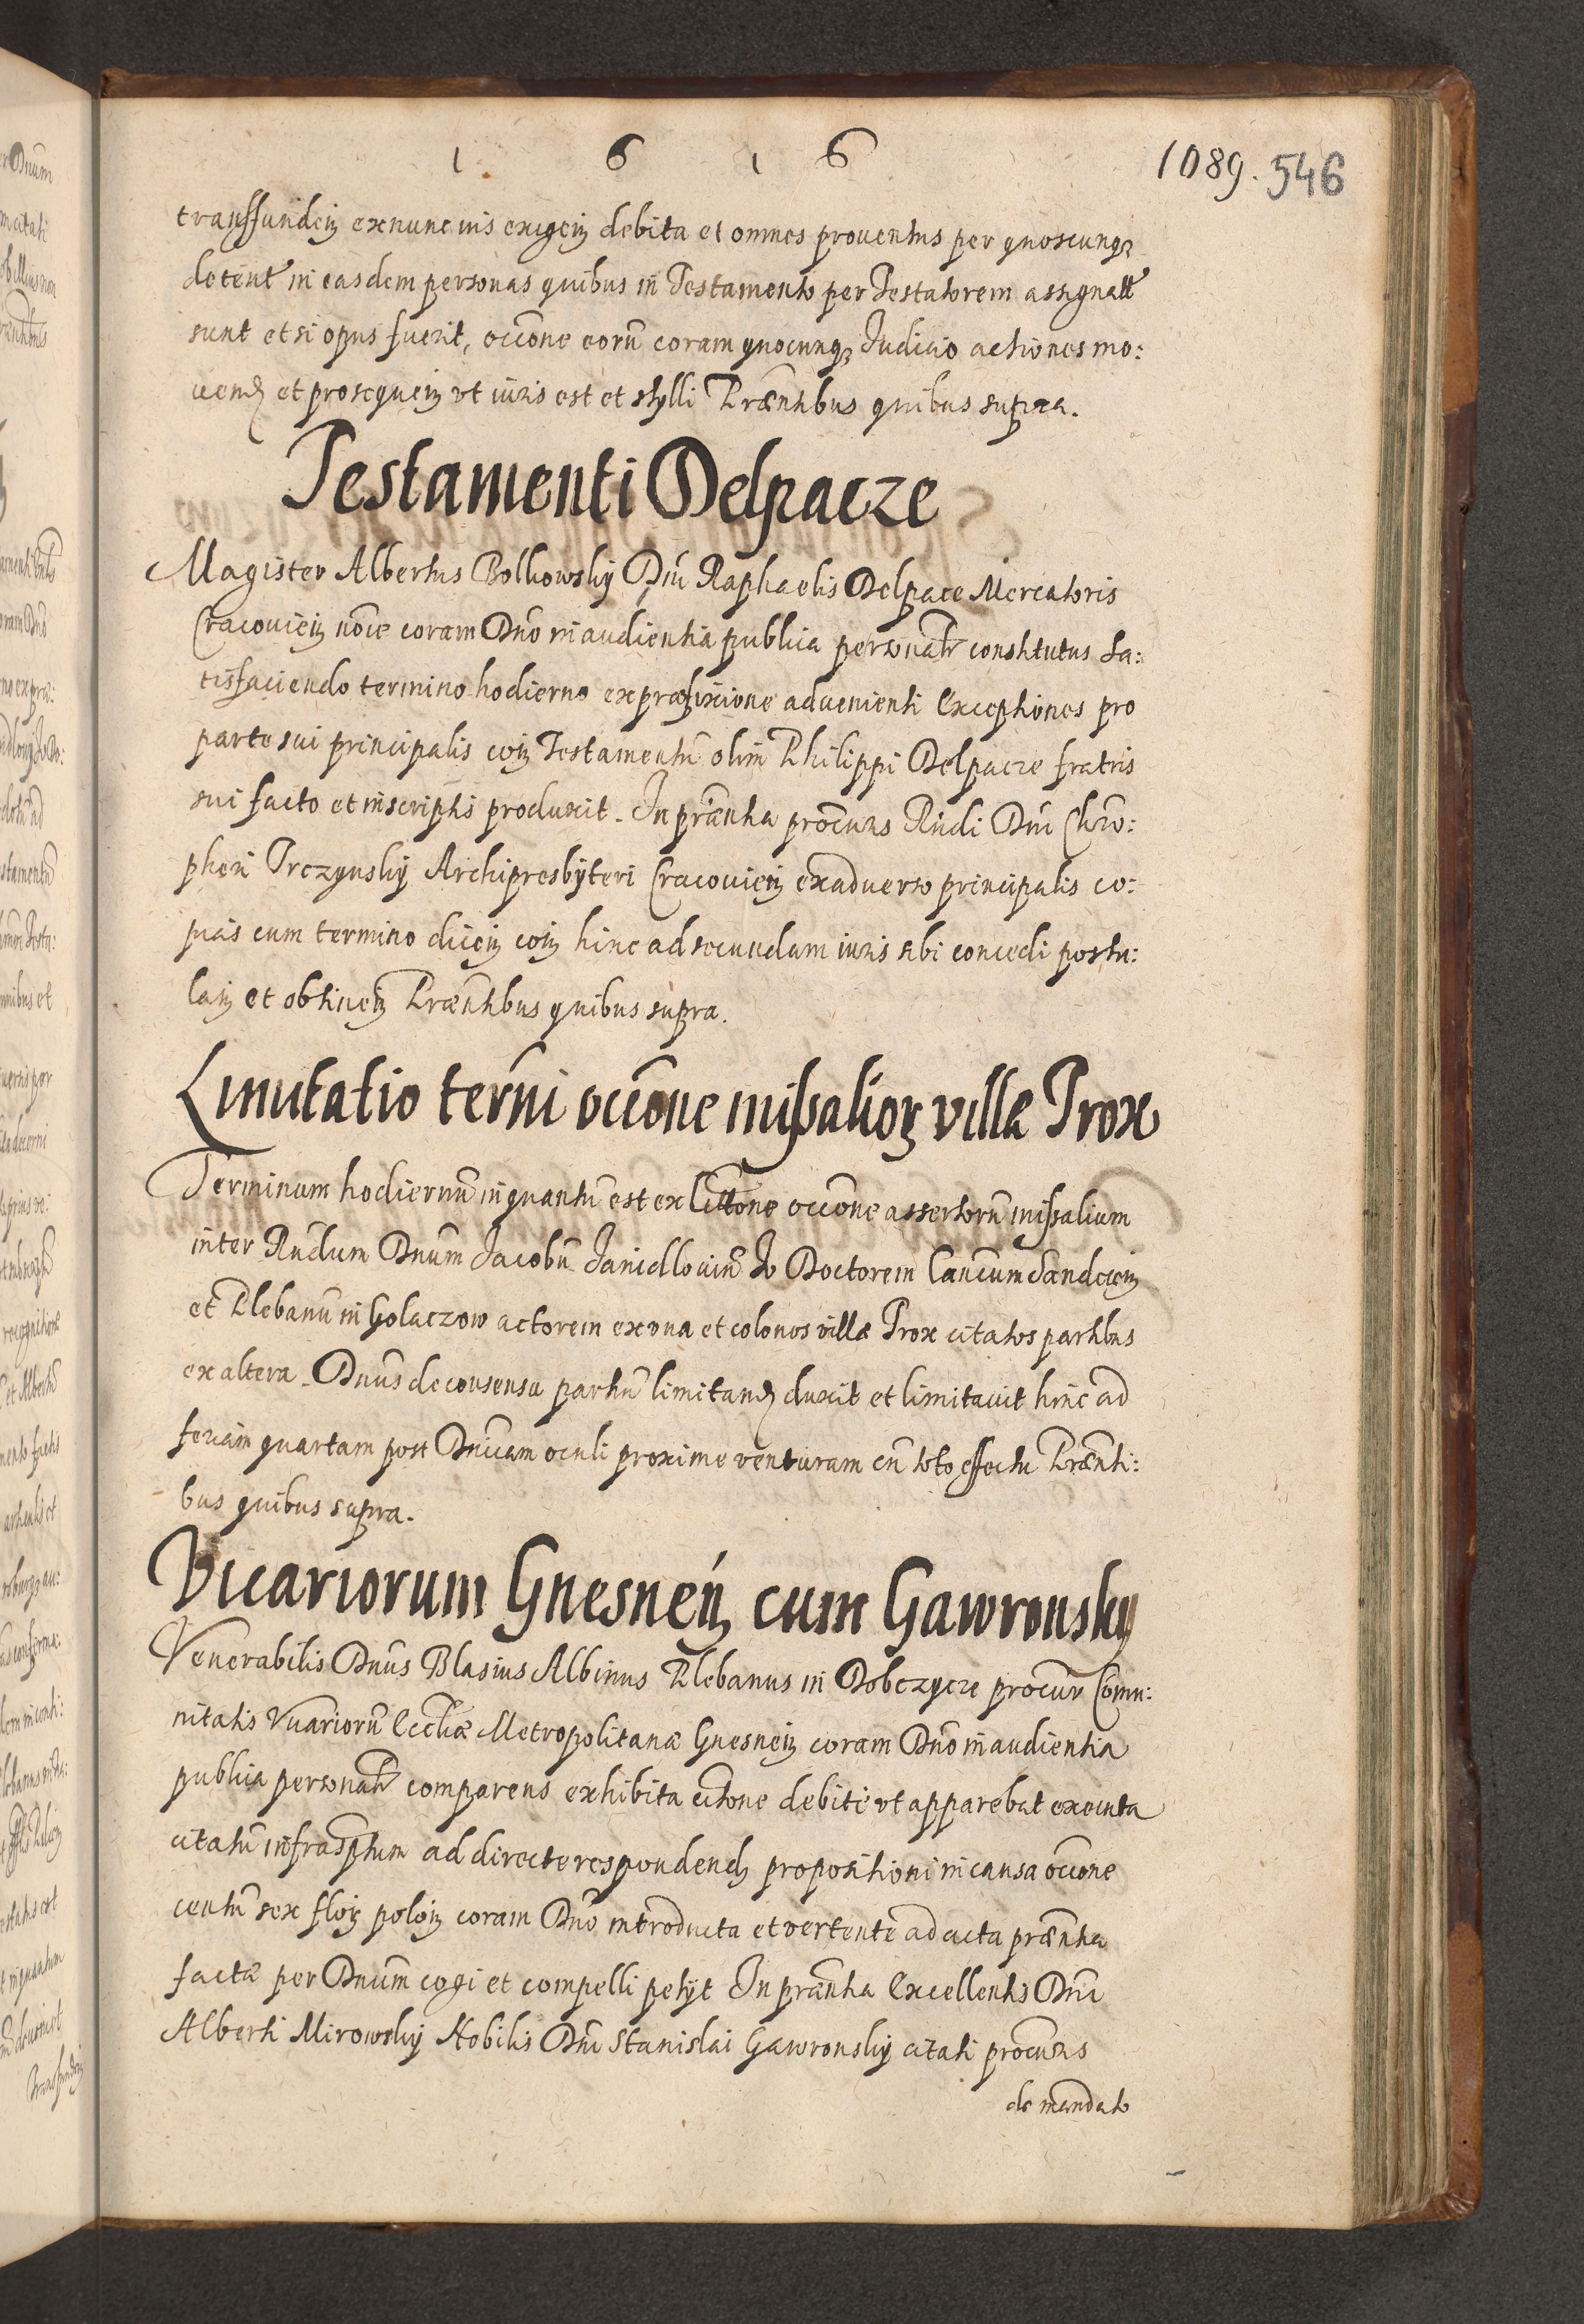 1 6 1 6
1089. 546
transfundeñ ex nunc iuis exigeñ debita et omnes prouentus per quoscunqꝫ
detent in easdem personas quibus in Testamento per Testatorem assignatt
sunt et si opus fuerit, occõne eorũ coram quocunqꝫ Judicio actiones mo:
uend et prosequeñ vt iuris est et stylli Præntibus quibus supra.
Testamenti Delpacze
Magister Albertus Bolkowsky Dni Raphaelis Delpace Mercatoris
Cracovieñ noĩe coram Dno in audientia publica personalr constitutus sa:
tisfaciendo termino hodierno ex præfixione advenienti Exceptiones pro
parte sui principalis coñ Testamentũ olim Philippi Delpacze fratris
sui facto et in scriptis produxit. In præntia procurs Rndi Dni Chro:
pheri Trczynsky Archipresbyteri Cracovieñ ex adverso principalis co:
pias cum termino diceñ coñ hinc ad secundam iuris sibi concedi postu:
lañ et obtineñ Præntibus quibus supra.
Limitatio termi occõne missaliorꝫ villæ Trox
Terminum hodiernũ in quantũ est ex Cittone occõne assertorũ missalium
inter Rndum Dnum Jacobũ Janidlovium Jv Doctorem Cancum Sandecieñ
et Plebanũ in Golaczow actorem ex vna et colonos villæ Trox citatos partibus
ex altera. Dnus de consensu partiũ limitand duxit et limitavit hinc ad
feriam quartam post Dnicam oculi proxime venturam cũ toto effectu Prænti:
bus quibus supra.
Vicariorum Gnesneñ cum Gawronsky
Venerabilis Dnus Blasius Albinus Plebanus in Dobczycze procur Comu:
nitatis Vicariorũ Eccliæ Metropolitanæ Gnesneñ coram Dno in audientia
publica personalr comparens exhibita citone debite vt apparebat executa
citatũ infrasptum ad directe respondend propositioni in causa occõne
centũ sex floñ poloñ coram Dno introducta et vertente ad acta præntia
factæ per Dnum cogi et compelli petyt In præntia Excellentis Dni
Alberti Mirowsky Nobilis Dni Stanislai Gawronsky citati procuris
de mandato